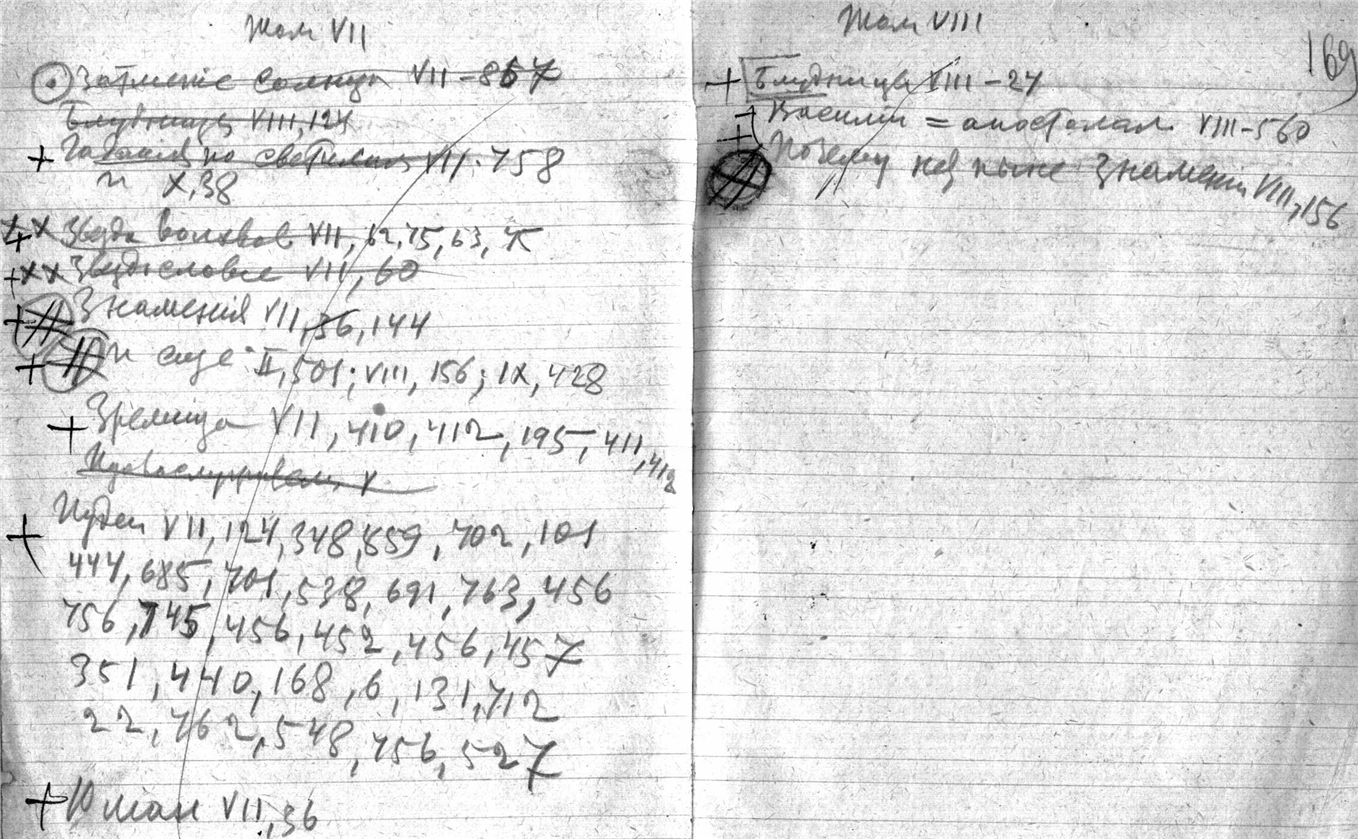 Том VII
Затменiе солнца VII-867
Блудница VIII, 124
+ Гаданiя по светилам VII. 758
и X, 38
+ х х Звезда волхвов VII, 62, 75, 63, 75
+ х х Звездословие VII, 60
+ Знаменiя VII, 36, 144
+ и еще II, 501; VIII, 156; IX, 428
+ Зрелища VII, 410, 412, 195, 411, 412
+ Иудеи VII, 124, 348, 859, 702, 101
444, 685, 701, 538, 691, 763, 456
756, 745, 456, 452, 456, 457
351, 440, 168, 6, 131, 712
22, 762, 548, 756, 527
VII, 36
Том VIII
169
+ Блудница VIII-27
+ Василий = апостолам VIII-560
+ Почему не ныне Знамения VIII, 156